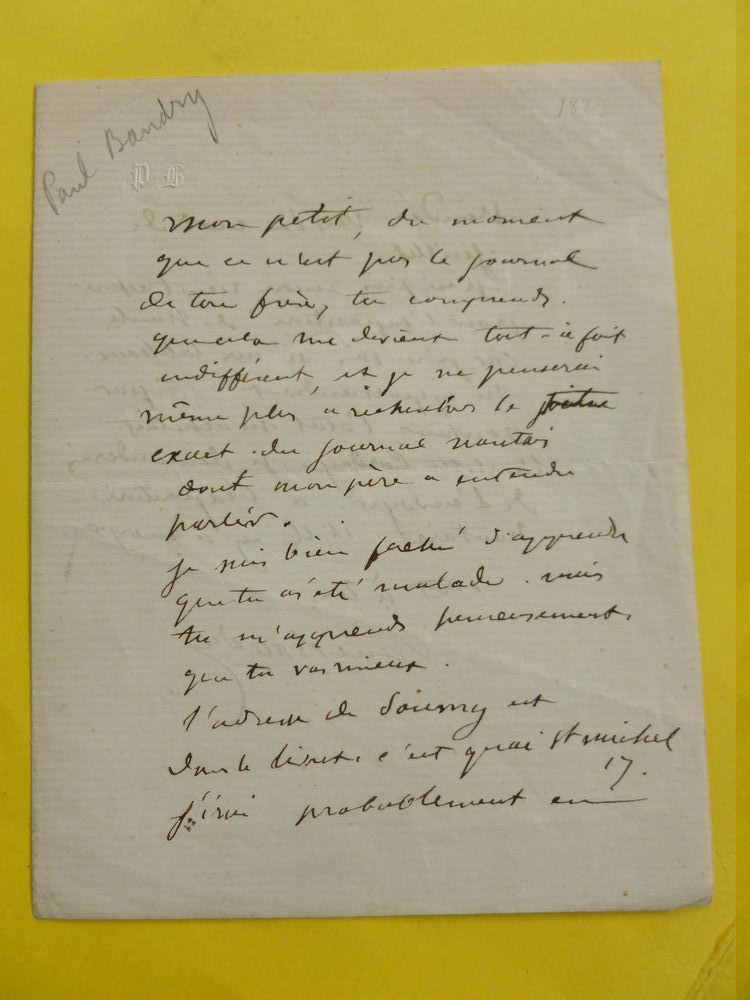 Paul Baudry
P B
mon petit, du moment
que ce n'est pas le journal
de ton frère, tu comprends
que cela me devient tout-à-fait
indifférent, et je ne penserai
même plus à rechercher le titre
exact du journal nantais
dont mon père a entendu
parler.
je suis bien faché d'apprendre
que tu as été malade. mais
tu m'apprends heureusement
que tu vas mieux.
l'adresse de Soumy est
dans le livret. c'est quai St michel
17.
j'irai probablement en